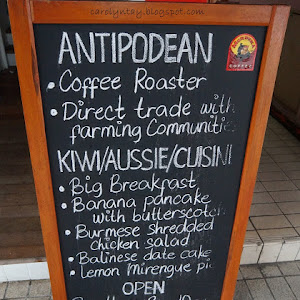 carolyntay.blogspot.com
ANTIPODEAN
• Coffee Roaster
• Direct trade with
farming Communitie
KIWI/AUSSIE/CUISINI
• Big Breakfast
• Banana pancake
with butterscotch
• Burmese shredded
chicken salad
• Balinese date cake
• Lemon Mirengue pie
OPEN